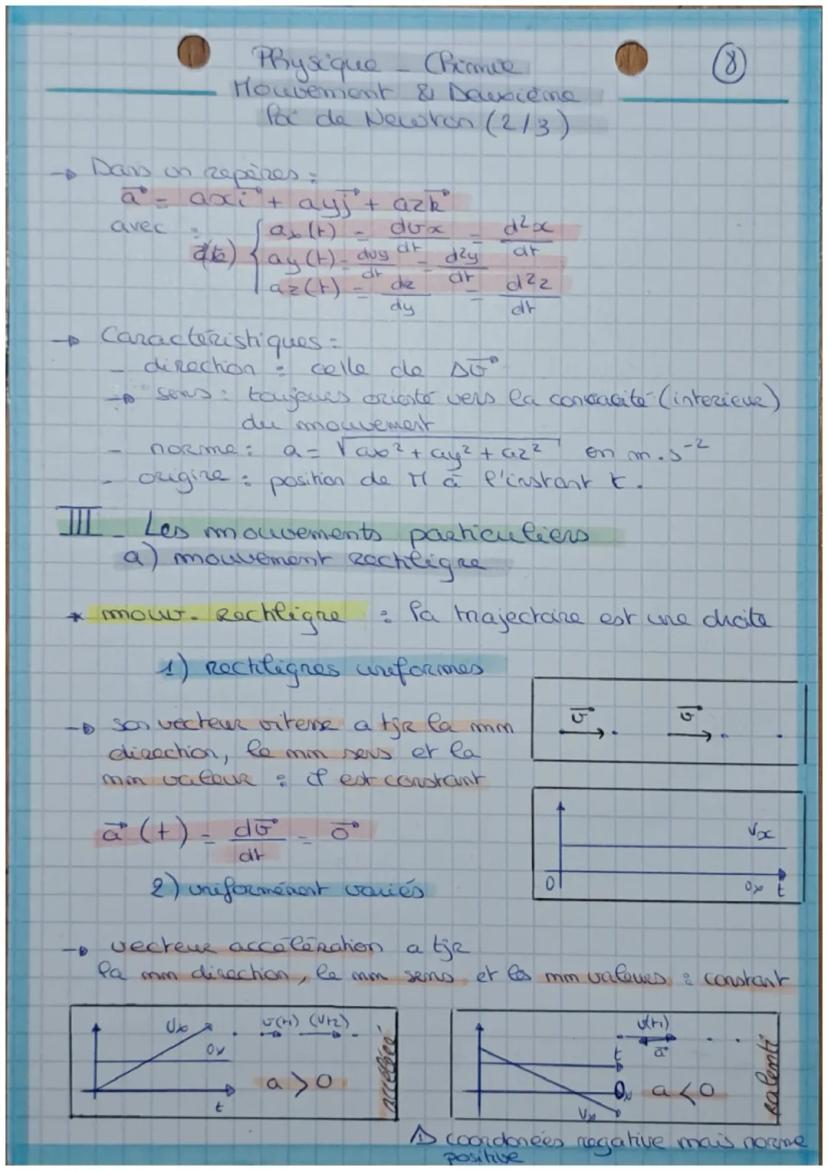 Physique - Chimie
⑧
Mouvement & Deuxième
loi de Newton (2/3)
→ Dans un repères :
a⃗ = axi⃗ + ayj⃗ + azk⃗
avec :
ax(t) = dvx/dt = d²x/dt
ay(t) = dvy/dt = d²y/dt
az(t) = dz/dy = d²z/dt
→ Caractéristiques :
- direction : celle de Δv⃗
→ sens : toujours orienté vers la concacité (interieur)
du mouvement
- norme : a = √ax² + ay² + az² en m.s⁻²
- origine : position de M à l'instant t.
III - Les mouvements particuliers
a) mouvement rectligne
* mouv. Rectligne : la trajectoire est une droite
1) rectlignes uniformes
→ son vecteur vitesse a tjr la mm
direction, le mm sens et la
mm valeur : il est constant
v⃗ v⃗
a⃗(t) = dv⃗/dt = 0⃗
vx
0 ax t
2) uniformément variés
→ vecteur accélération a tjr
la mm direction, le mm sens et les mm valeurs : constant
vx v(t1) (vt2)
ax
t
a > 0
accéléré
v(t1)
t a⃗
ax a < 0
vx
ralenti
⚠ coordonées negative mais norme
positive